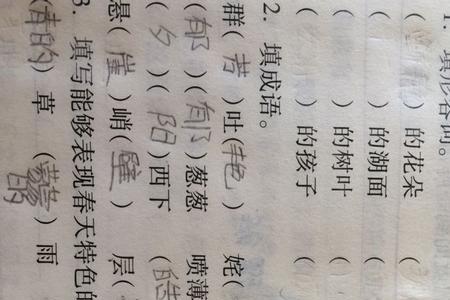 1. 填形容词。
( )的花朵 (
( )的湖面 (
( )的树叶 (
( )的孩子 (
2. 填成语。
群(芳)吐(艳) 姹(
(郁)(郁)葱葱 喷薄
(夕)(阳)西下 (皓
悬(崖)峭(壁) 层(
3. 填写能够表现春天特色的
(青的)草 ( 的)雨